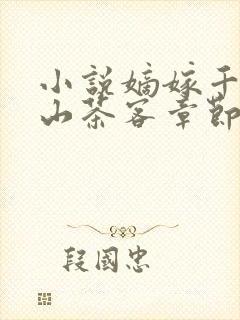 小説嫡嫁千
山茶客章節
段國忠